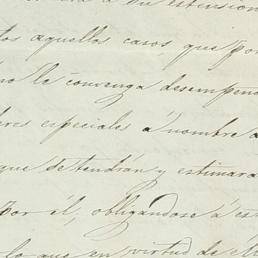 a su estension
tos aquellos casos, que por
no le convenga desempeñ
eres especiales á nombre a
que detendrán y estimara
Por él; obligandose á es
lo que en virtud de